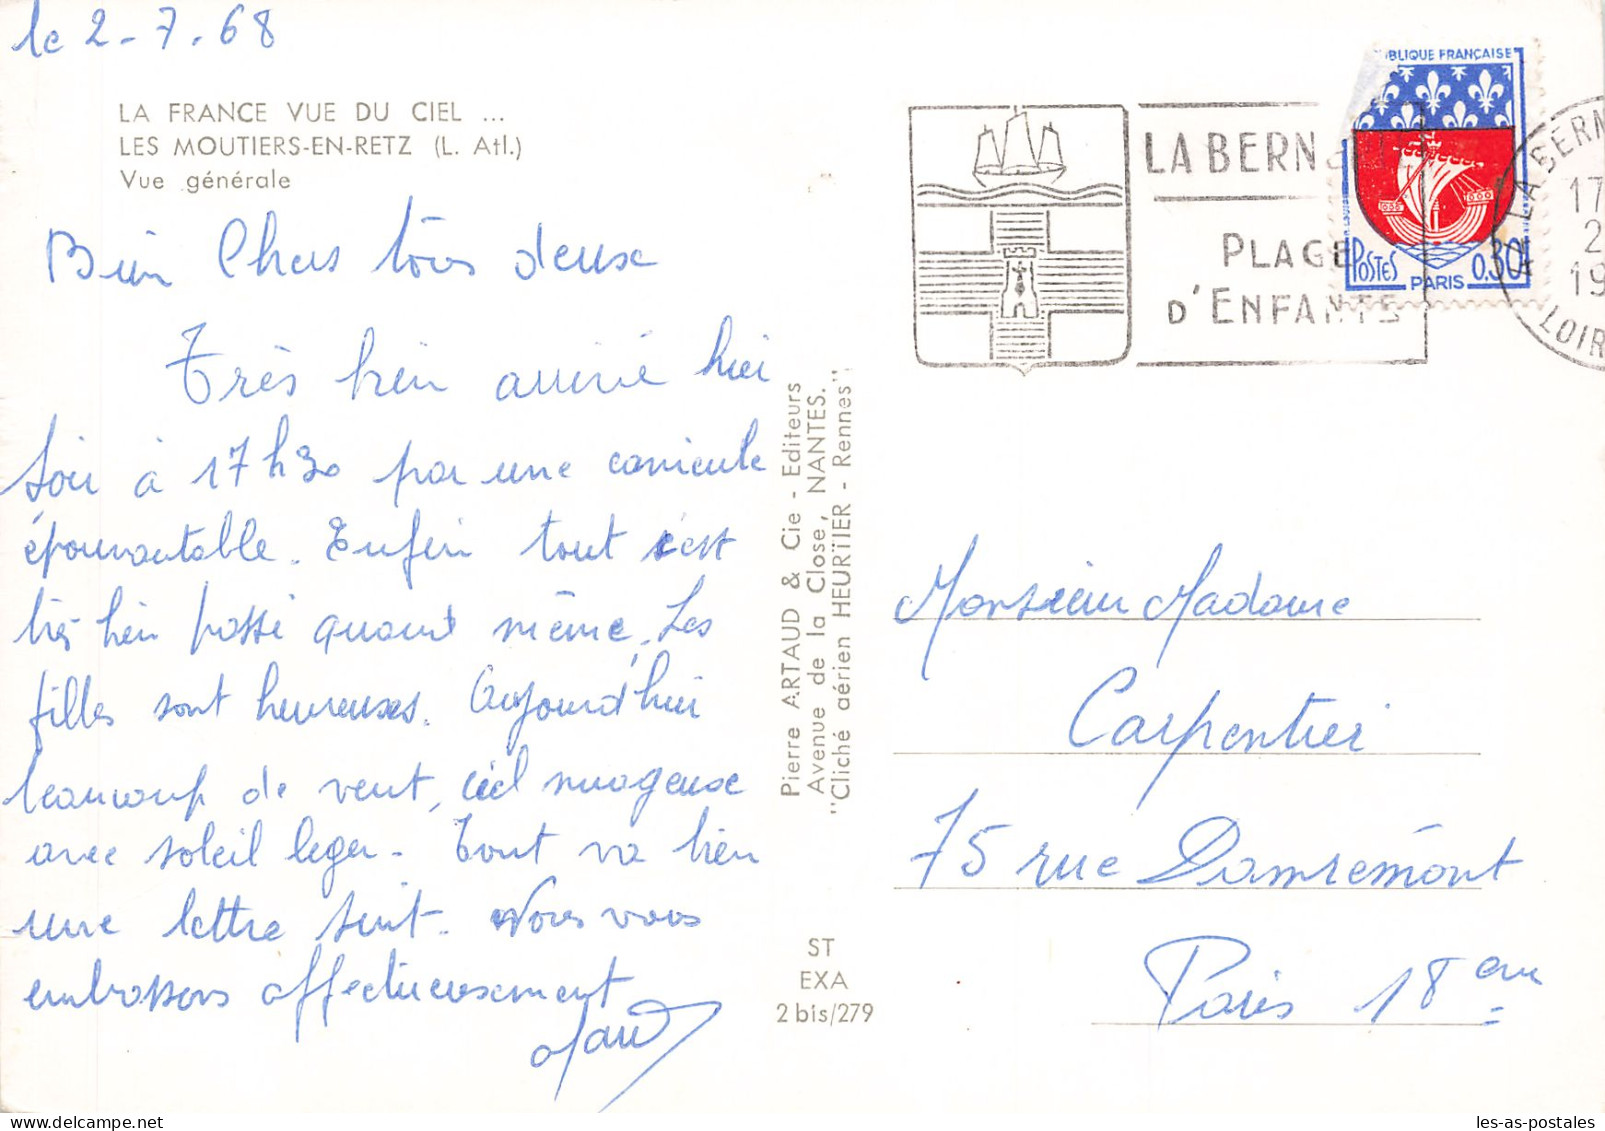 le 2-7-68
LA FRANCE VUE DU CIEL ...
LES MOUTIERS-EN-RETZ (L. Atl.)
Vue générale
Bien Chers tous deux
Très bien arrivé hier
soir à 17h30 par une canicule
épouvantable. Enfin tout s'est
très bien passé quand même. Les
filles sont heureuses. Aujourd'hui
beaucoup de vent, ciel nuageuse
avec soleil leger - Tout va bien
une lettre suit. Nous vous
embrassons affectueusement
Pierre ARTAUD & Cie - Editeurs
Avenue de la Close, NANTES.
"Cliché aérien HEURTIER - Rennes"
ST
EXA
2 bis/279
LA BERN
PLAGE
D'ENFANTS
RÉPUBLIQUE FRANÇAISE
POSTES
0,30
PARIS
LA BERN
17
2
19
LOIR
Monsieur Madame
Carpentier
75 rue Damrémont
Paris 18em
les-as-postales